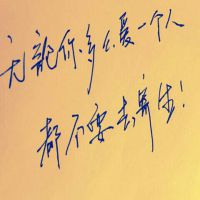 无论你多么爱一个人
都不要去寄生!